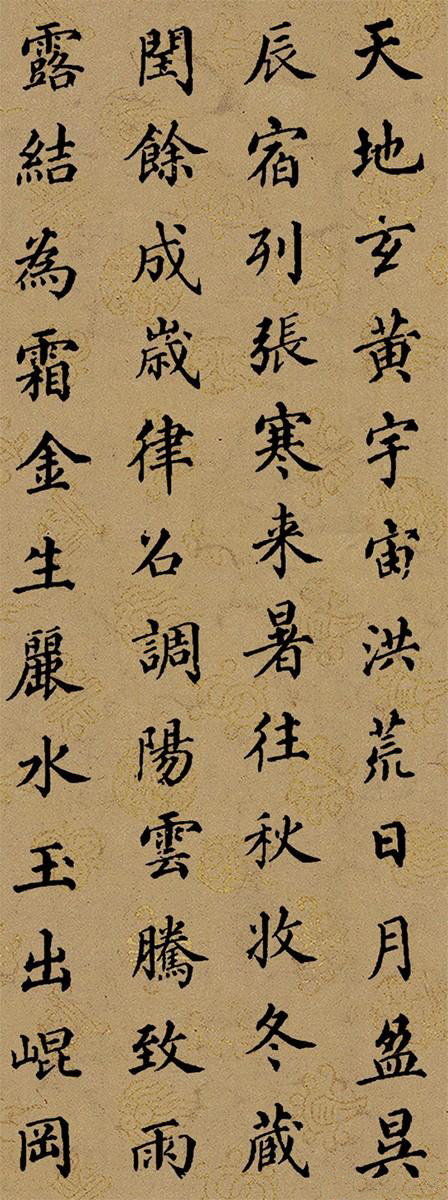 天地玄黃宇宙洪荒日月盈昃
辰宿列張寒来暑往秋收冬蔵
閏餘成歲律召調陽雲騰致雨
露結為霜金生麗水玉出崐岡